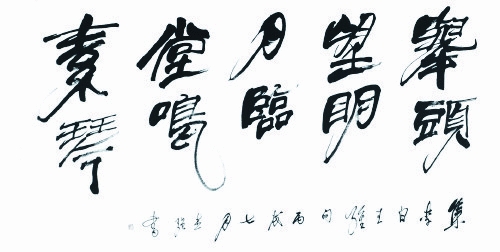 舉頭
望明
月臨
堂鳴
素琴
集李白王維句丙戌七月書